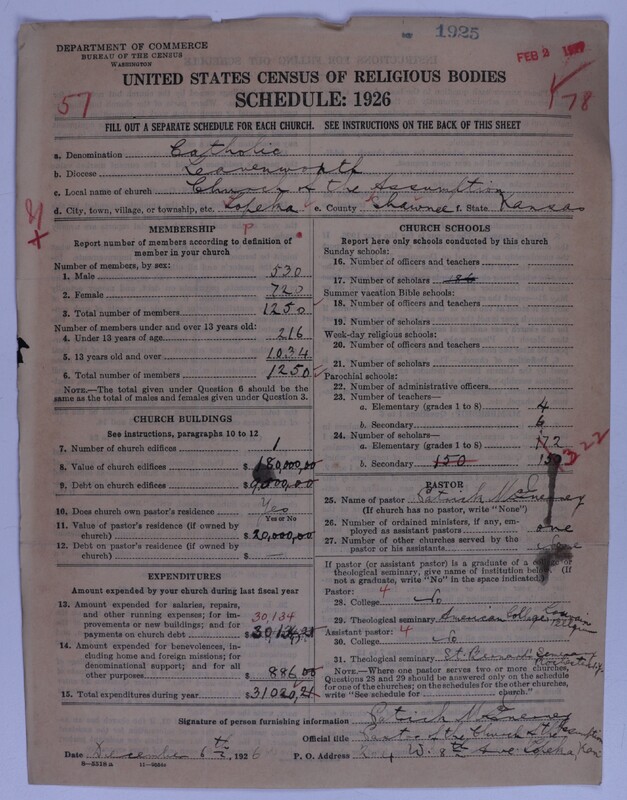 1925
DEPARTMENT OF COMMERCE
BUREAU OF THE CENSUS
WASHINGTON
FEB 2 1927
UNITED STATES CENSUS OF RELIGIOUS BODIES
SCHEDULE: 1926
57
78
FILL OUT A SEPARATE SCHEDULE FOR EACH CHURCH. SEE INSTRUCTIONS ON THE BACK OF THIS SHEET
a. Denomination Catholic
b. Diocese Leavenworth
c. Local name of church Church of the Assumption
d. City, town, village, or township, etc. Topeka e. County Shawnee f. State Kansas
MEMBERSHIP
Report number of members according to definition of
member in your church
Number of members, by sex:
1. Male 530
2. Female 720
3. Total number of members 1250
Number of members under and over 13 years old:
4. Under 13 years of age 216
5. 13 years old and over 1034
6. Total number of members 1250
NOTE.—The total given under Question 6 should be the
same as the total of males and females given under Question 3.
CHURCH BUILDINGS
See instructions, paragraphs 10 to 12
7. Number of church edifices 1
8. Value of church edifices $180,000,00
9. Debt on church edifices $9,000,00
10. Does church own pastor's residence? Yes
Yes or No
11. Value of pastor's residence (if owned by
church) $20,000,00
12. Debt on pastor's residence (if owned by
church) $ —
EXPENDITURES
Amount expended by your church during last fiscal year
13. Amount expended for salaries, repairs,
and other running expenses; for im-
provements or new buildings; and for
payments on church debt $ 30,134
14. Amount expended for benevolences, in-
cluding home and foreign missions; for
denominational support; and for all
other purposes $ 886,00
15. Total expenditures during year $ 31020,21
CHURCH SCHOOLS
Report here only schools conducted by this church
Sunday schools:
16. Number of officers and teachers
17. Number of scholars 186
Summer vacation Bible schools:
18. Number of officers and teachers
19. Number of scholars
Week-day religious schools:
20. Number of officers and teachers
21. Number of scholars
Parochial schools:
22. Number of administrative officers
23. Number of teachers—
a. Elementary (grades 1 to 8) 4
b. Secondary 6
24. Number of scholars—
a. Elementary (grades 1 to 8) 172
322
b. Secondary 150
PASTOR
25. Name of pastor Patrick McInerney
(If church has no pastor, write "None")
26. Number of ordained ministers, if any, em-
ployed as assistant pastors one
27. Number of other churches served by the
pastor or his assistants
If pastor (or assistant pastor) is a graduate of a college or
theological seminary, give name of institution below. (If
not a graduate, write "No" in the space indicated.)
Pastor: 4
28. College No
29. Theological seminary American College Louvain Belgium
Assistant pastor: 4
30. College No
31. Theological seminary St. Bernard Seminary
NOTE.—Where one pastor serves two or more churches,
Questions 28 and 29 should be answered only on the schedule
for one of the churches; on the schedules for the other churches,
write "See schedule for church."
Signature of person furnishing information Patrick McInerney
Official title Pastor of the Church of the Assumption
Date December 6th, 1926 P. O. Address W. 8th Ave Topeka Kan
8—5318a